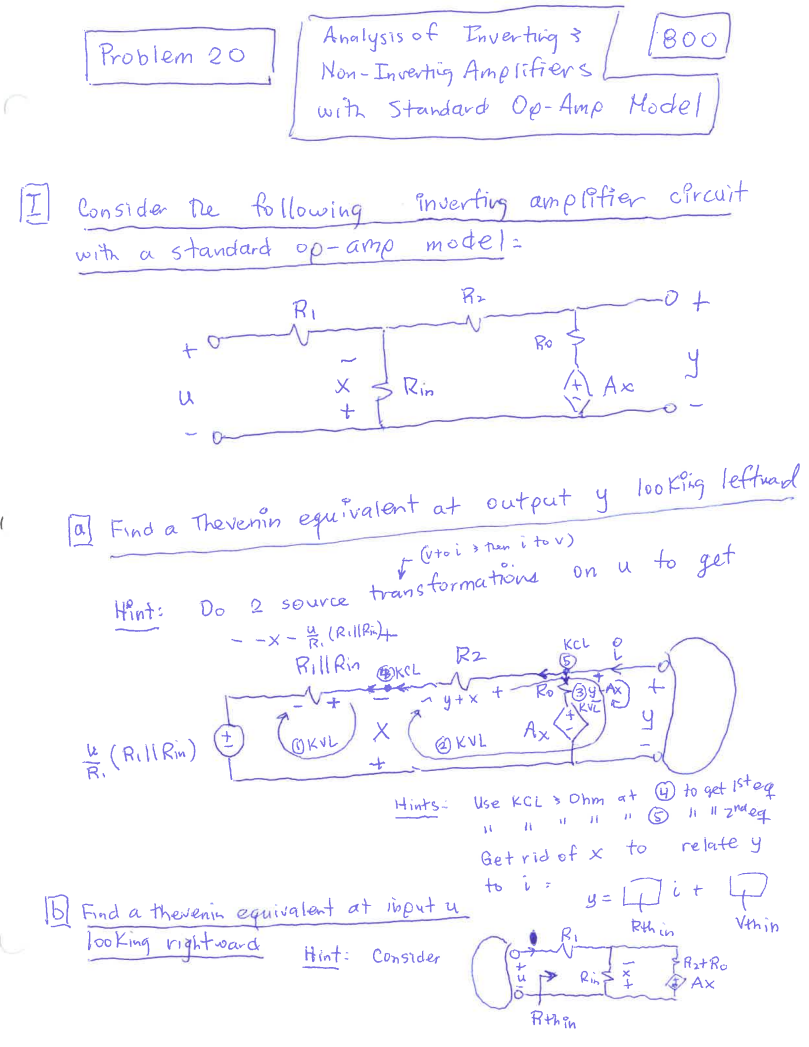 Problem 20
Analysis of Inverting &
Non-Inverting Amplifiers
with Standard Op-Amp Model
800
I Consider the following inverting amplifier circuit
with a standard op-amp model:
R1
R2
+
u
-
-
x
+
Rin
Ro
+
-
Ax
+
y
-
a Find a Thevenin equivalent at output y looking leftward
(v to i & then i to v)
Hint: Do 2 source transformations on u to get
- -x - u/R1 (R1||Rin) +
R1||Rin
④ KCL
R2
KCL
⑤
0
i
- +
-
- y+x +
Ro
③ y-Ax
KVL
+
u/R1 (R1||Rin)
+
-
① KVL
x
+
② KVL
Ax
+
-
+
y
-
Hints: Use KCL & Ohm at ④ to get 1st eq
" " " " " ⑤ " " 2nd eq
Get rid of x to relate y
to i :
y = □ i + □
Rthin
Vthin
b Find a thevenin equivalent at input u
looking rightward Hint: Consider
R1
+
u
-
Rin
-
x
+
R2+Ro
Ax
Rthin